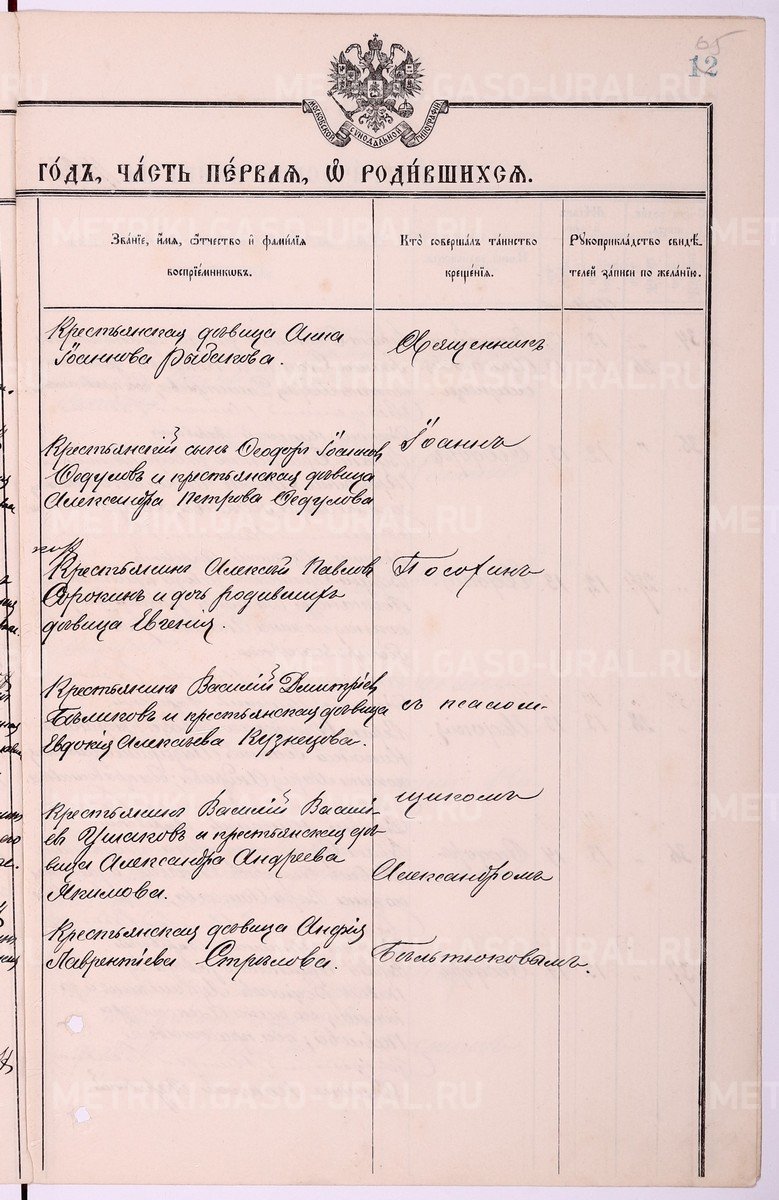 65
12
МОСКОВСКОЙ СѴНОДАЛЬНОЙ ТИПОГРАФІИ
ГО́ДЪ, ЧА́СТЬ ПЕ́РВАЯ, Ѿ РОДИ́ВШИХСЯ.
Зва́нїе, и́мя, ѻ́тчество и фами́лїя
воспрїе́мниковъ.
Кто̀ соверша́лъ та́инство
креще́нїя.
Рꙋкоприкла́дство свидѣ́-
телей за́писи по жела́нїю.
Крестьянская дѣвица Анна
Іоаннова Рыбакова.
Священникъ
Крестьянскій сынъ Ѳеодоръ Іоаннов
Ѳедуловъ и крестьянская дѣвица
Александра Петрова Ѳедулова
Іоаннъ
Крестьянинъ Алексѣй Павловъ
Сорокинъ и дочь родившихъ
дѣвица Евгенія.
Пософинъ
Крестьянинъ Василій Дмитріев
Бѣликовъ и крестьянская дѣвица
Евдокія Алексѣева Кузнецова.
съ псалом-
Крестьянинъ Василій Василі-
евъ Ушаковъ и крестьянская дѣ-
вица Александра Андреева
Якимова.
щикомъ
Александромъ
Крестьянская дѣвица Андрія
Лаврентіева Стрѣлова.
Бѣльтюковымъ.
METRIKI.GASO-URAL.RU